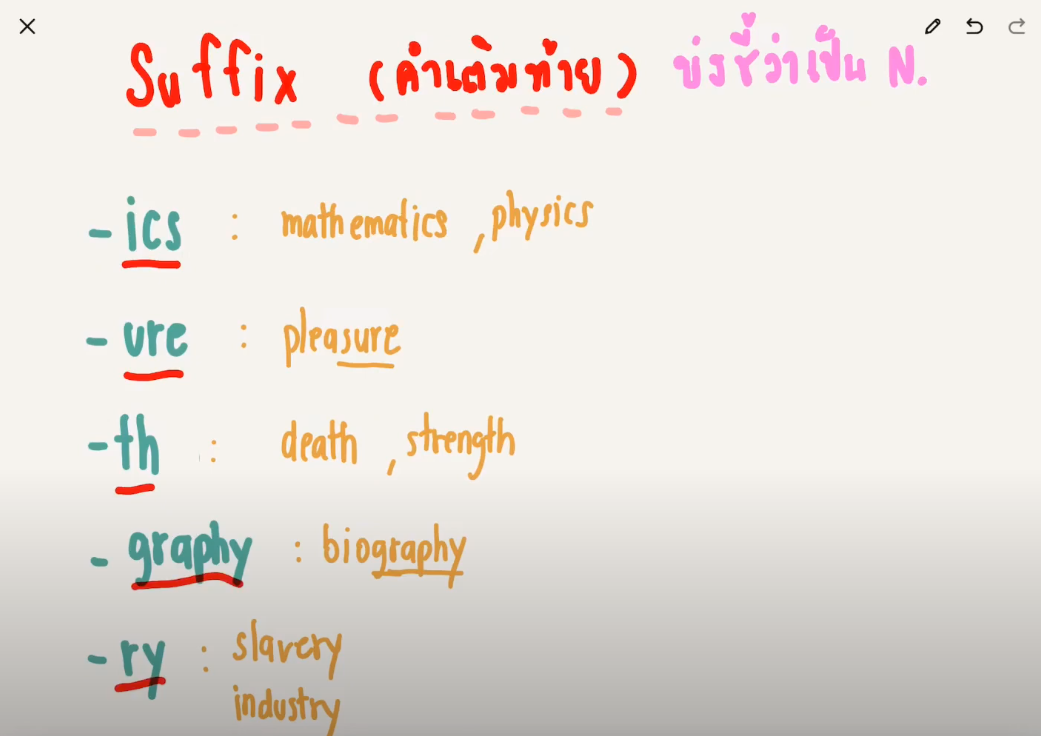 Suffix (คำเติมท้าย) บ่งชี้ว่าเป็น N.
- ics : mathematics , physics
- ure : pleasure
- th : death , strength
- graphy : biography
- ry : slavery
industry